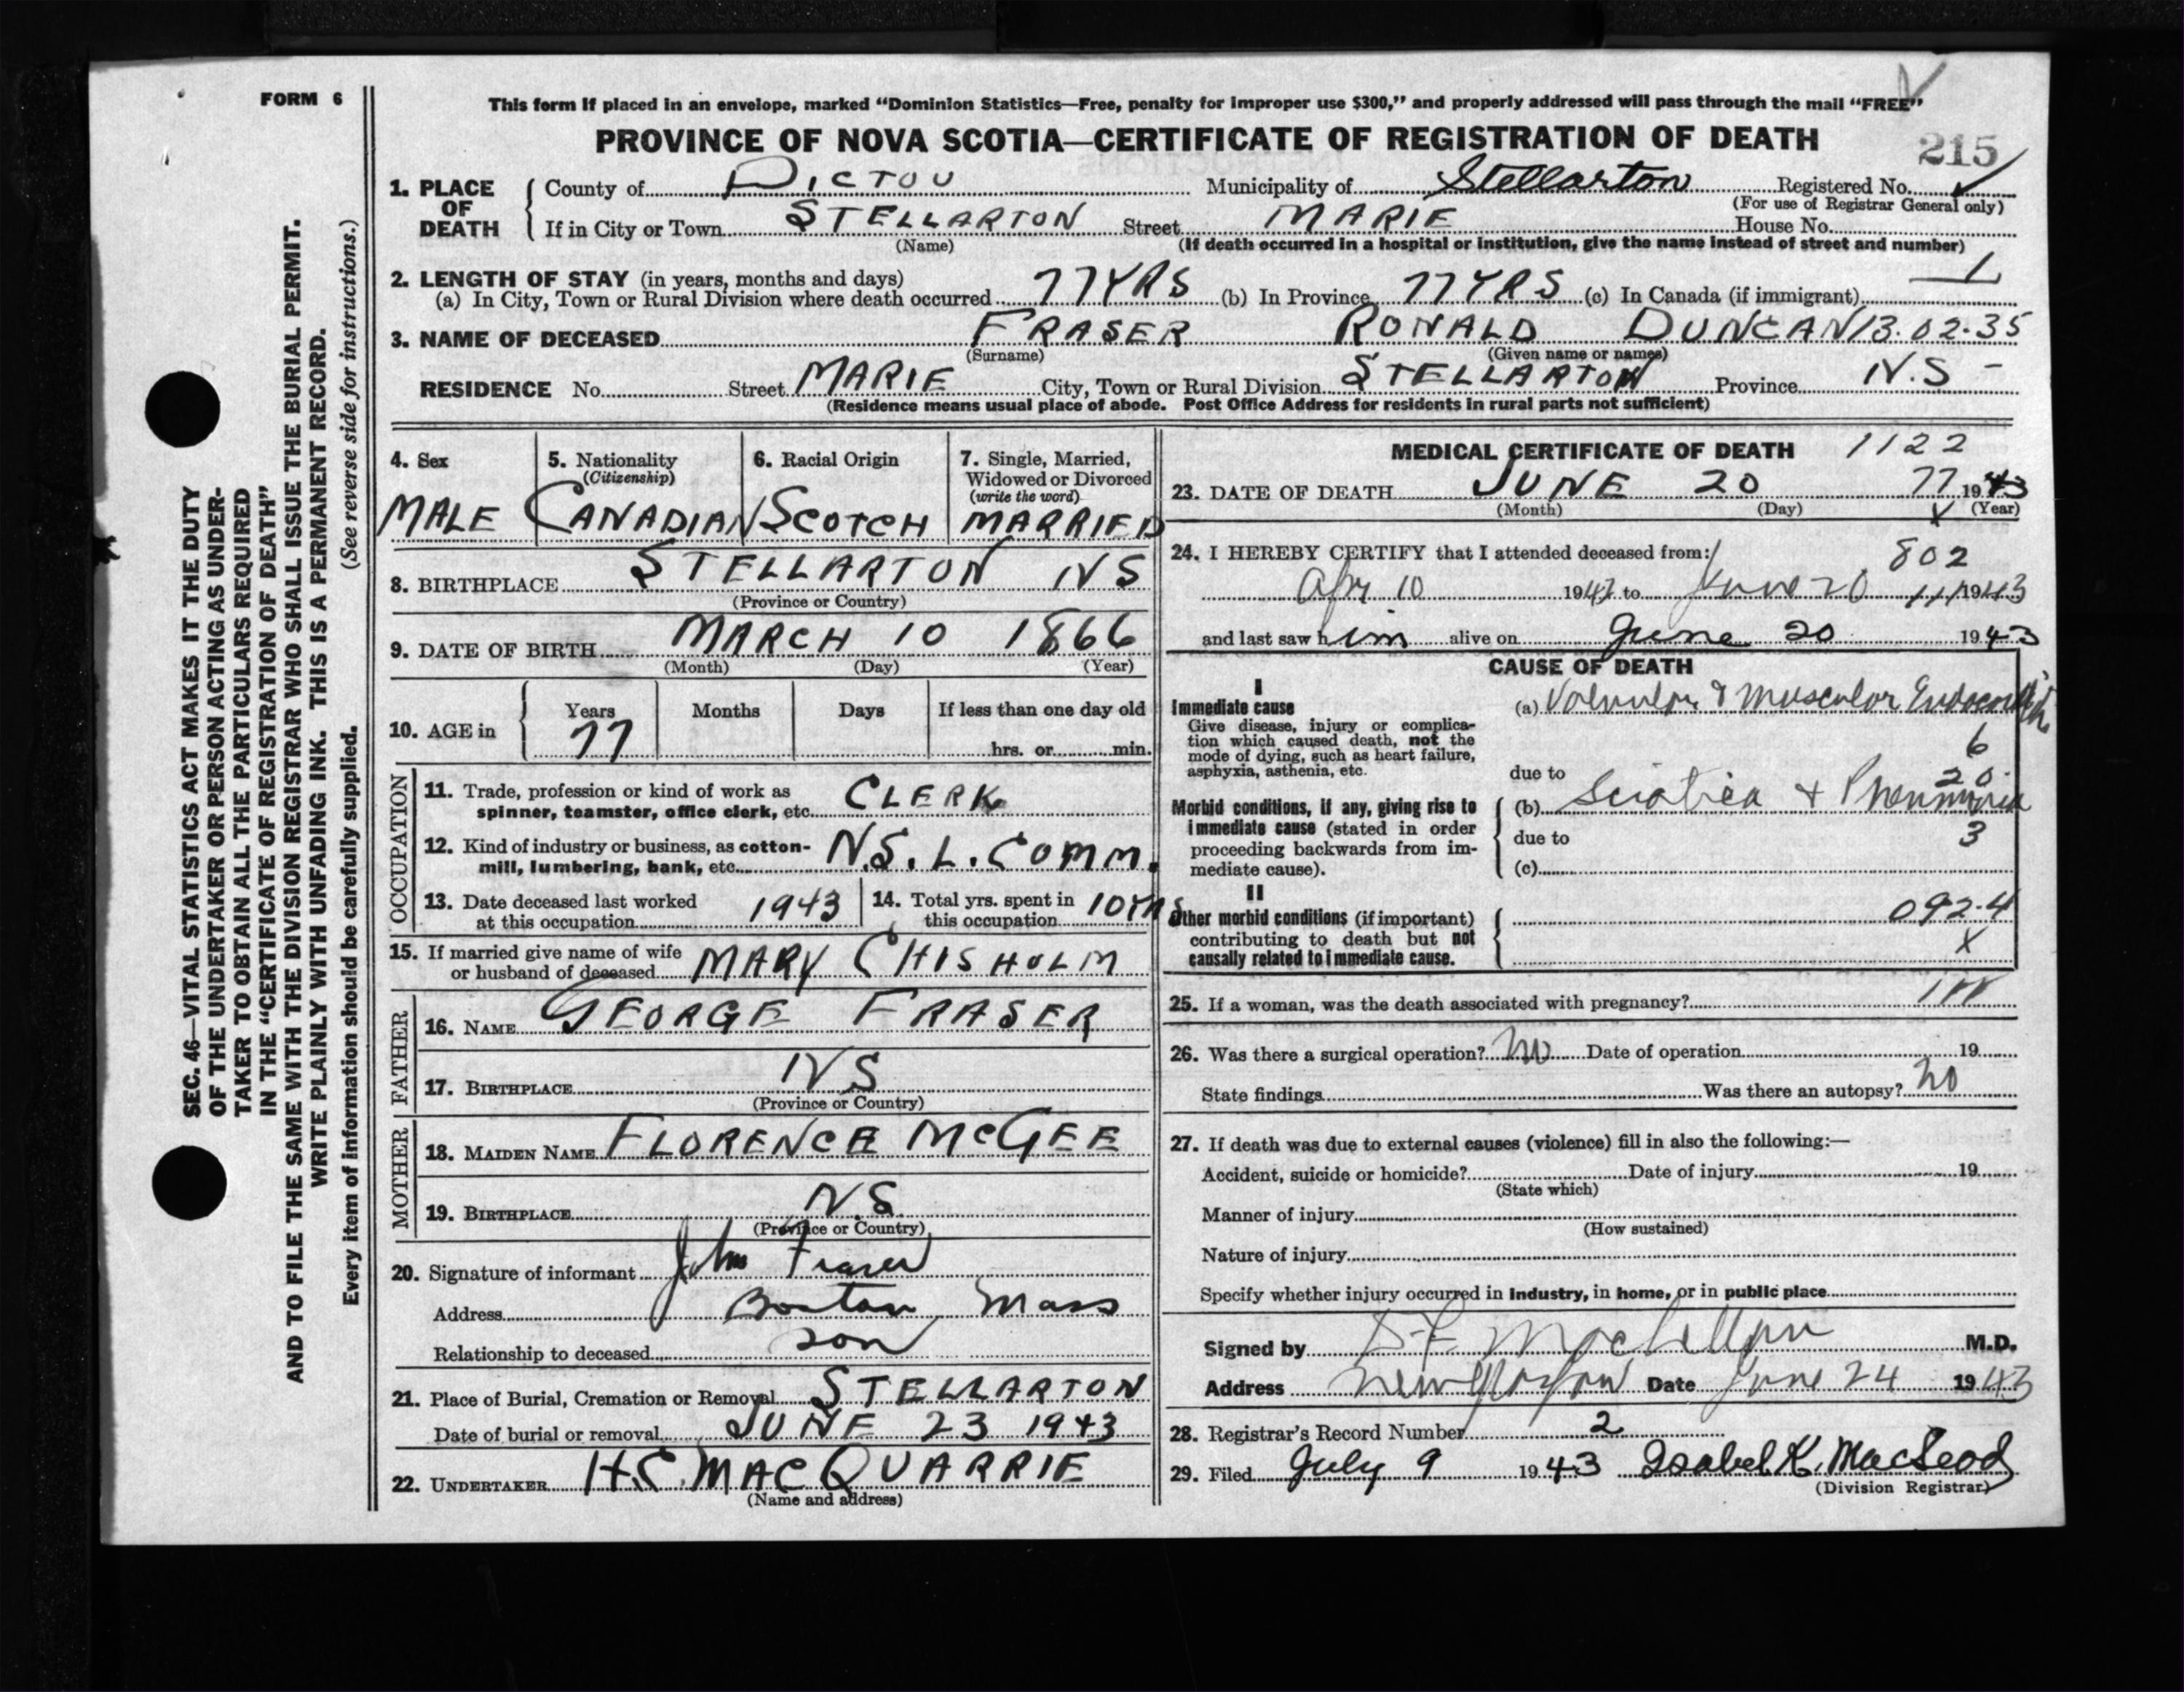 FORM 6
This form if placed in an envelope, marked “Dominion Statistics—Free, penalty for improper use $300,” and properly addressed will pass through the mail “FREE”
PROVINCE OF NOVA SCOTIA—CERTIFICATE OF REGISTRATION OF DEATH
215
1. PLACE OF DEATH
County of PICTOU Municipality of Stellarton Registered No.
(For use of Registrar General only)
If in City or Town STELLARTON Street MARIE House No.
(Name) (If death occurred in a hospital or institution, give the name instead of street and number)
2. LENGTH OF STAY (in years, months and days)
(a) In City, Town or Rural Division where death occurred 77 YRS (b) In Province 77 YRS (c) In Canada (if immigrant)
3. NAME OF DECEASED FRASER RONALD DUNCAN 13.02.35
(Surname) (Given name or names)
RESIDENCE No. Street MARIE City, Town or Rural Division STELLARTON Province N.S -
(Residence means usual place of abode. Post Office Address for residents in rural parts not sufficient)
4. Sex
MALE
5. Nationality
(Citizenship)
CANADIAN
6. Racial Origin
SCOTCH
7. Single, Married,
Widowed or Divorced
(write the word)
MARRIED
8. BIRTHPLACE STELLARTON NS
(Province or Country)
9. DATE OF BIRTH MARCH 10 1866
(Month) (Day) (Year)
10. AGE in Years Months Days If less than one day old
77 hrs. or min.
OCCUPATION
11. Trade, profession or kind of work as
spinner, teamster, office clerk, etc. CLERK
12. Kind of industry or business, as cotton-
mill, lumbering, bank, etc. N.S. L. COMM.
13. Date deceased last worked
at this occupation 1943
14. Total yrs. spent in
this occupation 10 YRS
15. If married give name of wife
or husband of deceased MARY CHISHOLM
FATHER
16. NAME GEORGE FRASER
17. BIRTHPLACE NS
(Province or Country)
MOTHER
18. MAIDEN NAME FLORENCE McGEE
19. BIRTHPLACE N.S
(Province or Country)
20. Signature of informant John Fraser
Address Boston Mass
Relationship to deceased son
21. Place of Burial, Cremation or Removal STELLARTON
Date of burial or removal JUNE 23 1943
22. UNDERTAKER H.C. MACQUARRIE
(Name and address)
MEDICAL CERTIFICATE OF DEATH 1122
23. DATE OF DEATH JUNE 20 77 1943
(Month) (Day) (Year)
24. I HEREBY CERTIFY that I attended deceased from:
802
Apr 10 1943 to June 20 1943
and last saw him alive on June 20 1943
CAUSE OF DEATH
I
Immediate cause
Give disease, injury or complica-
tion which caused death, not the
mode of dying, such as heart failure,
asphyxia, asthenia, etc.
(a) Valvular & Muscular Endocarditis
6
due to 20.
Morbid conditions, if any, giving rise to
immediate cause (stated in order
proceeding backwards from im-
mediate cause).
(b) Sciatica + Pneumonia
due to 3
(c)
II
Other morbid conditions (if important)
contributing to death but not
causally related to immediate cause.
092.4
X
25. If a woman, was the death associated with pregnancy?
26. Was there a surgical operation? No Date of operation 19
State findings Was there an autopsy? No
27. If death was due to external causes (violence) fill in also the following:—
Accident, suicide or homicide? Date of injury 19
(State which)
Manner of injury
(How sustained)
Nature of injury
Specify whether injury occurred in industry, in home, or in public place
Signed by MacLellan M.D.
Address New Glasgow Date June 24 1943
28. Registrar's Record Number 2
29. Filed July 9 1943 Isabel K. MacLeod
(Division Registrar)
SEC. 46—VITAL STATISTICS ACT MAKES IT THE DUTY
OF THE UNDERTAKER OR PERSON ACTING AS UNDER-
TAKER TO OBTAIN ALL THE PARTICULARS REQUIRED
IN THE “CERTIFICATE OF REGISTRATION OF DEATH”
AND TO FILE THE SAME WITH THE DIVISION REGISTRAR WHO SHALL ISSUE THE BURIAL PERMIT.
WRITE PLAINLY WITH UNFADING INK. THIS IS A PERMANENT RECORD.
Every item of information should be carefully supplied. (See reverse side for instructions.)